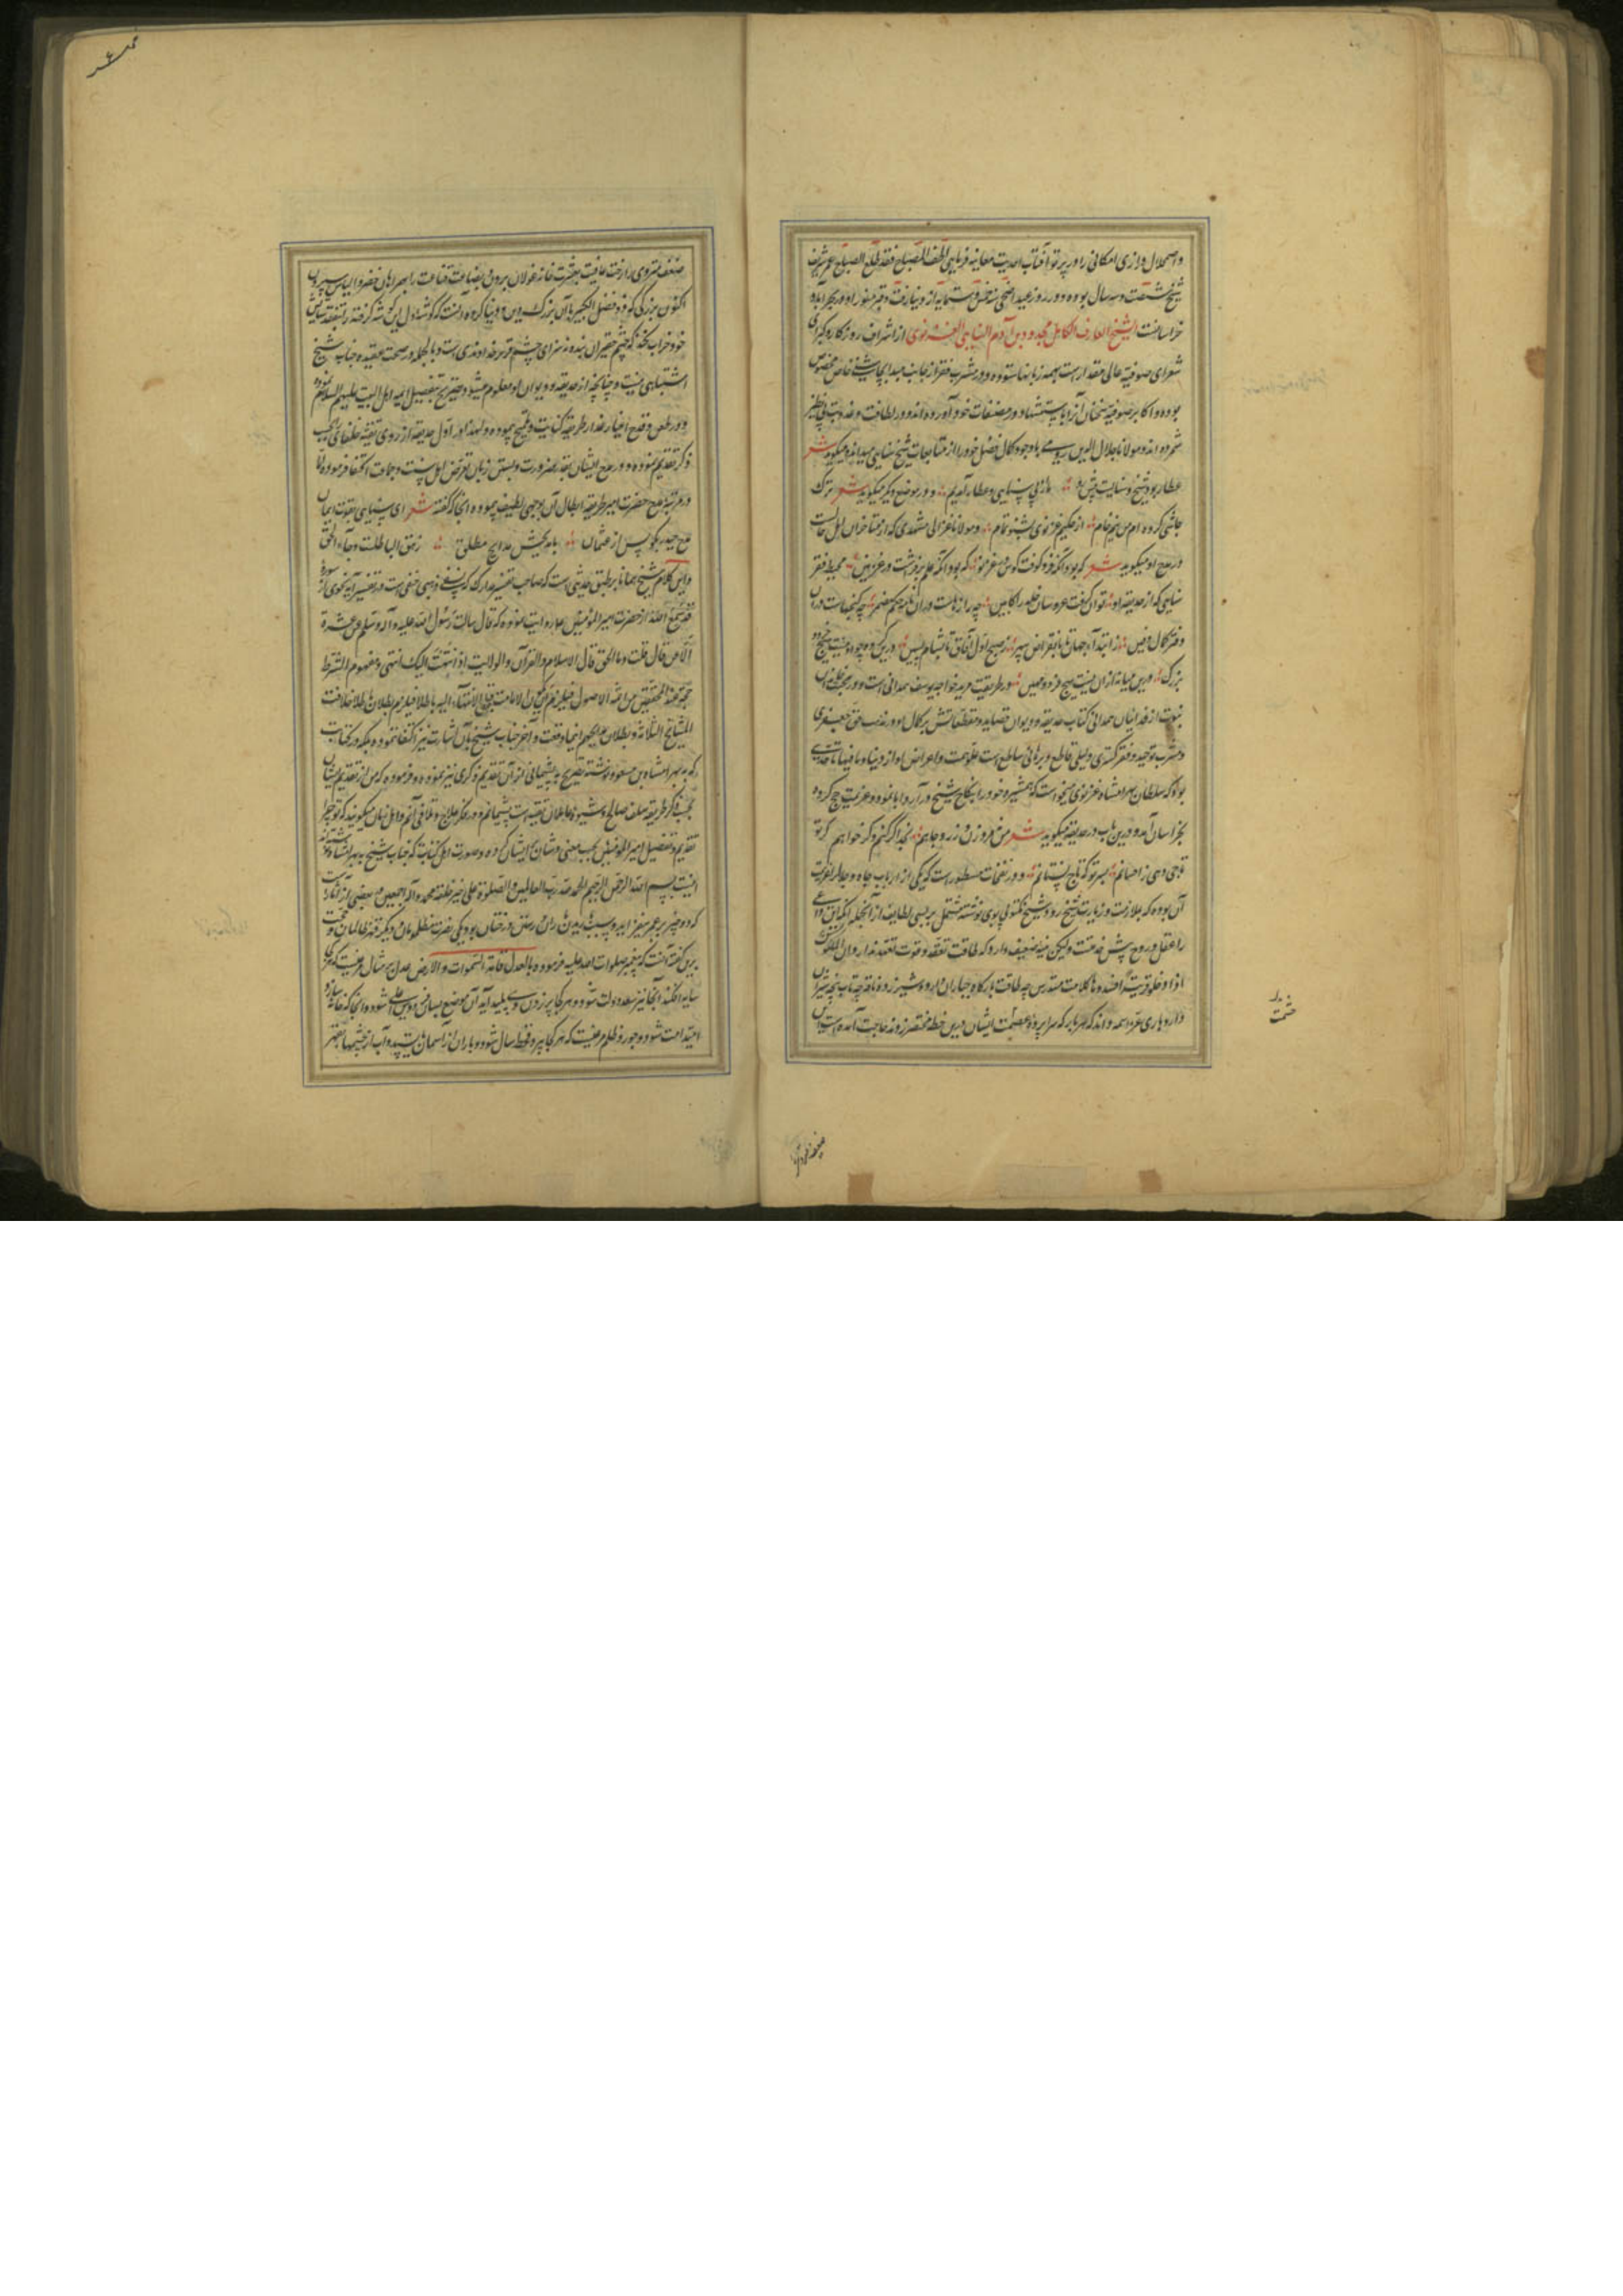 واضمحلال وارزی امکانی را در پرتو آفتاب احدیت معاینه فرمایی اطف المصباح فقد طلع الصباح عمر شریف
شیخ شصت و سه سال بوده و در روز عید اضحی سنه خمس و ستمایه از دنیا رفت و قبر منور او در بحرآباد
خراسانست الشیخ العارف الکامل مجدود بن آدم السنایی الغزنوی از اشراف روزکار و کبرای
شعرای صوفیه عالی مقدارست بهمه زبانها ستوده و در مشرب فقر از جانب مبدا بچاشنی خاص مخصوص
بوده و اکابر صوفیه سخنان آنرا باستشهاد در مصنفات خود آورده اند و در لطافت و عذوبت بی نظیر
شمرده اند و مولانا جلال الدین رومی با وجود کمال فضل خود را از متابعان شیخ سنایی میداند و میکوید شعر
عطار بود شیخ و سنایست پیش رو ما از پی سنایی و عطار آمدیم و در موضع دیگر میکوید شعر ترک
جوشی کرده ام من نیم خام از حکیم غزنوی بشنو تمام و مولانا غزالی مشهدی که از متاخران اهل حالست
در مدح او میکوید شعر که بود آنکه فرو کوفت کوس در غزنو که بود آنکه علم برفراشت در غزنین محیط فقر
سنایی که از حدیقه او توان گفت عروسان خلد را کابین چه رازهاست در ان نامه حکم مضمر چه کنجهاست در ان
دفتر کمال دفین ز ابتدآء جهان تا بانقراض سپهر ز صبح اول آفاق تا بشام پسین درین کروه چو او نیست هیچ مرد
بزرگ درین میانه ازان نیست هیچ فرد و معین و در طریقت مرید خواجه یوسف همدانی است و در
نبوت از فدائیان همدانی کتاب حدیقه و دیوان قصاید و مقطعاتش بر کمال او در مذهب حق جعفری
و مشرب توحید و فقر کستری دلیلی قاطع و برهانی ساطع است علو همت و اعراض او از دنیا و مافیها تا حدی
بود که سلطان بهرامشاه غزنوی میخواست که همشیره خود را بنکاح شیخ درآرد ابا نمود و عزیمت حج کرده
بخراسان آمد و درین باب در حدیقه میکوید شعر من نه مرد زن و زر و جاهم بخدا کر کنم و کر خواهم کر تو
تاجی دهی ز احسانم بسر تو که تاج نستانم و در نفحات مسطورست که یکی از ارباب جاه و جلال عزیمت
آن بوده که بملازمت و زیارت شیخ رود شیخ مکتوبی بوی نوشته مشتمل بر بسی لطایف از آنجمله اینکه این داعی
را عقل و روح پیش خدمتست ولیکن بنیه ضعیف دارد که طاقت تفقد و قوت تعهد ندارد ان الملوک
اذا دخلوا قریة افسدوها کلاست مندرس چه طاقت بارکاه جباران دارد و شیر زده ناقه چه تاب پنجه شیران
دارد باری عز اسمه داند که هر بار که سراپرده عصمت ایشان درین خطه مختصر زدند حاجت آمده است این
حشمت
ضعف منزوی را رخت عافیت بعشرت خانه غولان بردن و بضاعت قناعت را بهمراهان خضر و الیاس سپردن
اکنون بزرکی که فر و فضل الکبیر بآن بزرک دین و دنیا کرده آنست که کوشه دل این کوشه کرفته را بتفقد ستایش
خود خراب نکند که جسم حقیر ان بنده نه سزای چشم قربر خداوندی است و بالجمله در صحت عقیده جناب شیخ
اشتباهی نیست و چنانچه از حدیقه و دیوان او معلوم میشود تصریح بتفضیل ایمه اهل البیت علیهم السلام نموده
و در طعن و قدح اغیار غدار طریقه کنایت و تلمیح پیموده و لهذا در اول حدیقه از روی تقیه خلفای
ذکر تقدیم نموده و در مدح ایشان بقدر ضرورت و بستن زبان تعرض اهل سنت و جماعت اکتفا فرموده و
در مرتبه مدح حضرت امیر طریقه ابطال آن بوجهی لطیف پیموده آنجا که گفته شعر ای سنایی بقوت ایمان
مدح حیدر بکو پس از عثمان با مدیحش مدایح مطلق زهق الباطلست و جآء الحق
و این کلام شیخ همانا بر طبق حدیثی است که صاحب تفسیر مدارک که نسفی مذهبی حنفی است در تفسیر آیه نجوی از سوره
قد سمع الله از حضرت امیر المومنین علی روایت نموده که قال سالت رسول الله علیه و آله وسلم عن عشرة
الی ان قال قلت و ما الحق قال الاسلام و القرآن و الولایت اذا انتهت الیک انتهی و مفهوم الشرط
حجة عند المحققین من ائمة الاصول فیلزم ان یکون الامامت قبل الانتهآء الیه باطلا فیلزم بطلان خلافت
المشایخ الثلاثة و بطلان مدایحهم ایضا و قت و آخر جناب شیخ بآن اشارت نیز اکتفا ننموده بلکه در کتابت
که به بهرامشاه بن مسعود نوشته تصریح به پشیمانی از آن تقدیم ذکری نیز نموده و فرموده که من از تقدیم ایشان
بحسب ذکر طریقه سلف صالح و شیوه عاملان تقیه است پشیمانم و در فکر علاج و تلافی آنم و اهل زمان میکویند که تو چرا
تقدیم و تفضیل امیر المومنین بحسب معنی و شان ایشان کرده و صورت اول کتابت که جناب شیخ به بهرامشاه نوشته
اینست بسم الله الرحمن الرحیم الحمد لله رب العالمین و الصلوة علی خیر خلقه محمد و آله اجمعین بعضی از آثار
که دو چیز بر عمر بیفزاید و سبب باریدن باران و رستن درختان بود یکی نصرت مظلومان و دیکر قهر ظالمان و حجت
برین گفته آنست که پیغمبر صلوات الله علیه فرموده بالعدل قامت السموات و الارض عدل بر مثال مرغیست که هر کجا
سایه افکند آنجا نیز سعد دولت شود و هر کجا پر زدن وی پدید آید آن موضع بسان فردوس اعلی شود و آنجا که خانه سازد
امیدامت شود و جور و ظلم مرغیست که هر کجا پرد قحط سال شود و باران از آسمان بایستد و آب از چشمها بقعر